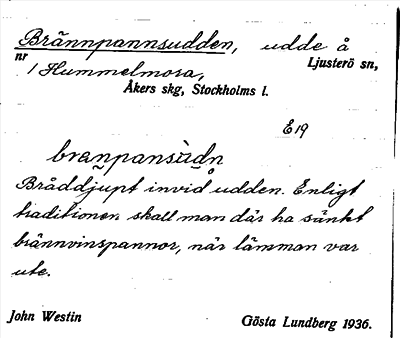 Brännpannsudden, udde å
nr 1 Hummelmora, Ljusterö sn,
Åkers skg, Stockholms l.
E19
branpansùdn
Bråddjupt invid udden. Enligt
traditionen skall man där ha sänkt
brännvinspannor, när länsman var
ute.
John Westin Gösta Lundberg 1936.